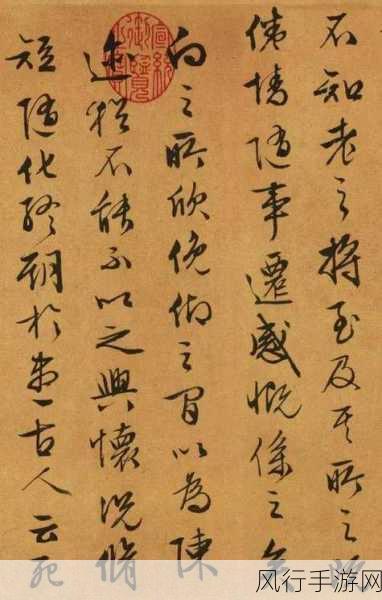 不知老之將至及其所之既
倦情隨事遷感慨係之矣
向之所欣俛仰之間以為陳
迹猶不能不以之興懷況脩
短隨化終期於盡古人云死
风行手游网